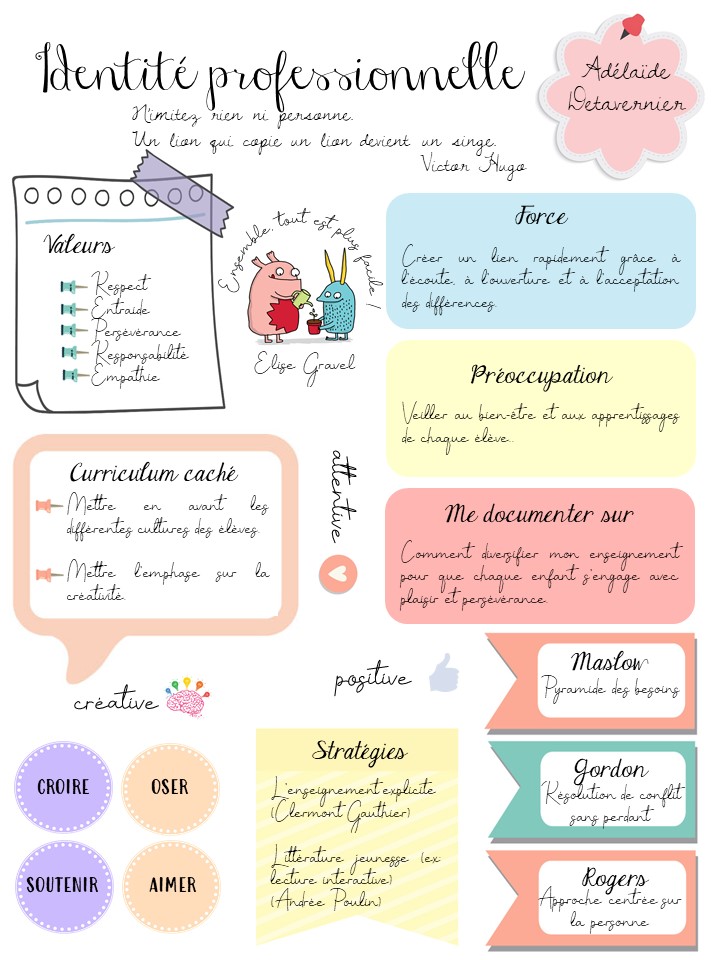 Identité professionnelle
N'imitez rien ni personne.
Un lion qui copie un lion devient un singe.
Victor Hugo
Adélaïde
Detavernier
Valeurs
Respect
Entraide
Persévérance
Responsabilité
Empathie
Ensemble, tout est plus facile !
Elise Gravel
Force
Créer un lien rapidement grâce à
l'écoute, à l'ouverture et à l'acceptation
des différences.
Préoccupation
Veiller au bien-être et aux apprentissages
de chaque élève..
Curriculum caché
Mettre en avant les
différentes cultures des élèves.
Mettre l'emphase sur la
créativité.
attentive
Me documenter sur
Comment diversifier mon enseignement
pour que chaque enfant s'engage avec
plaisir et persévérance.
créative
positive
Maslow
Pyramide des besoins
Gordon
Résolution de conflit
sans perdant
Rogers
Approche centrée sur
la personne
CROIRE
OSER
SOUTENIR
AIMER
Stratégies
L'enseignement explicite
(Clermont Gauthier)
Littérature jeunesse (ex:
lecture interactive)
(Andrée Poulin)